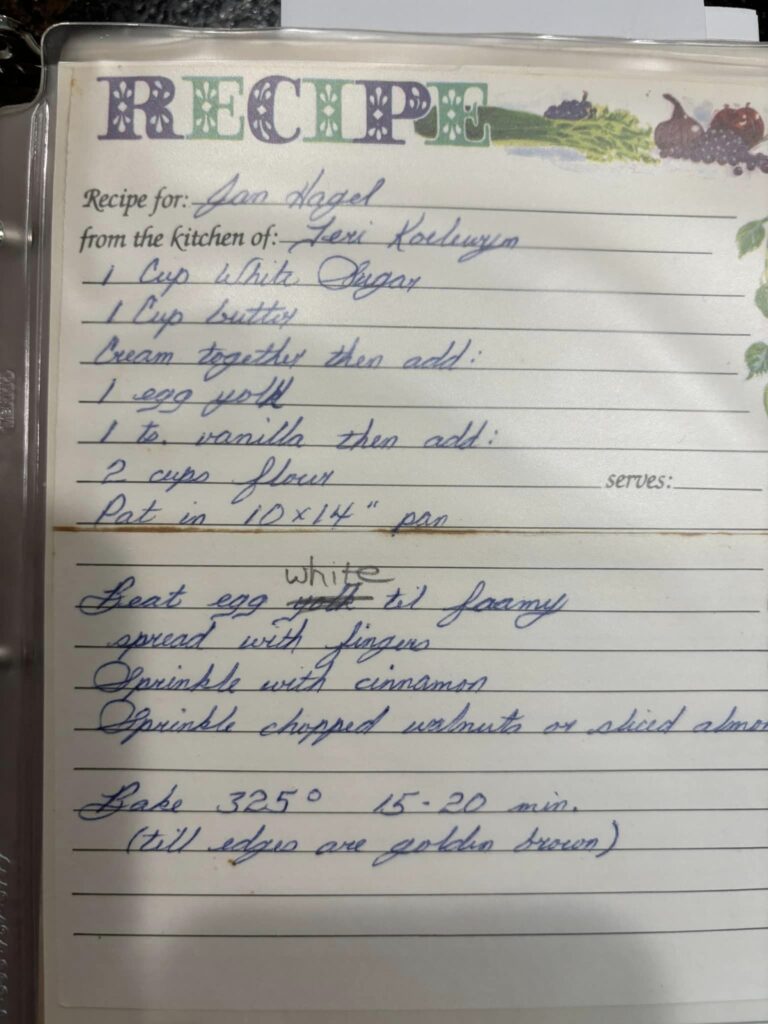 RECIPE
Recipe for: Jan Hagel
from the kitchen of: Teri Koelewyn
1 Cup White Sugar
1 Cup butter
Cream together then add:
1 egg yolk
1 ts. vanilla then add:
2 cups flour serves:
Pat in 10x14" pan
white
Beat egg yolk til foamy
spread with fingers
Sprinkle with cinnamon
Sprinkle chopped walnuts or sliced almon
Bake 325° 15-20 min.
(till edges are golden brown)